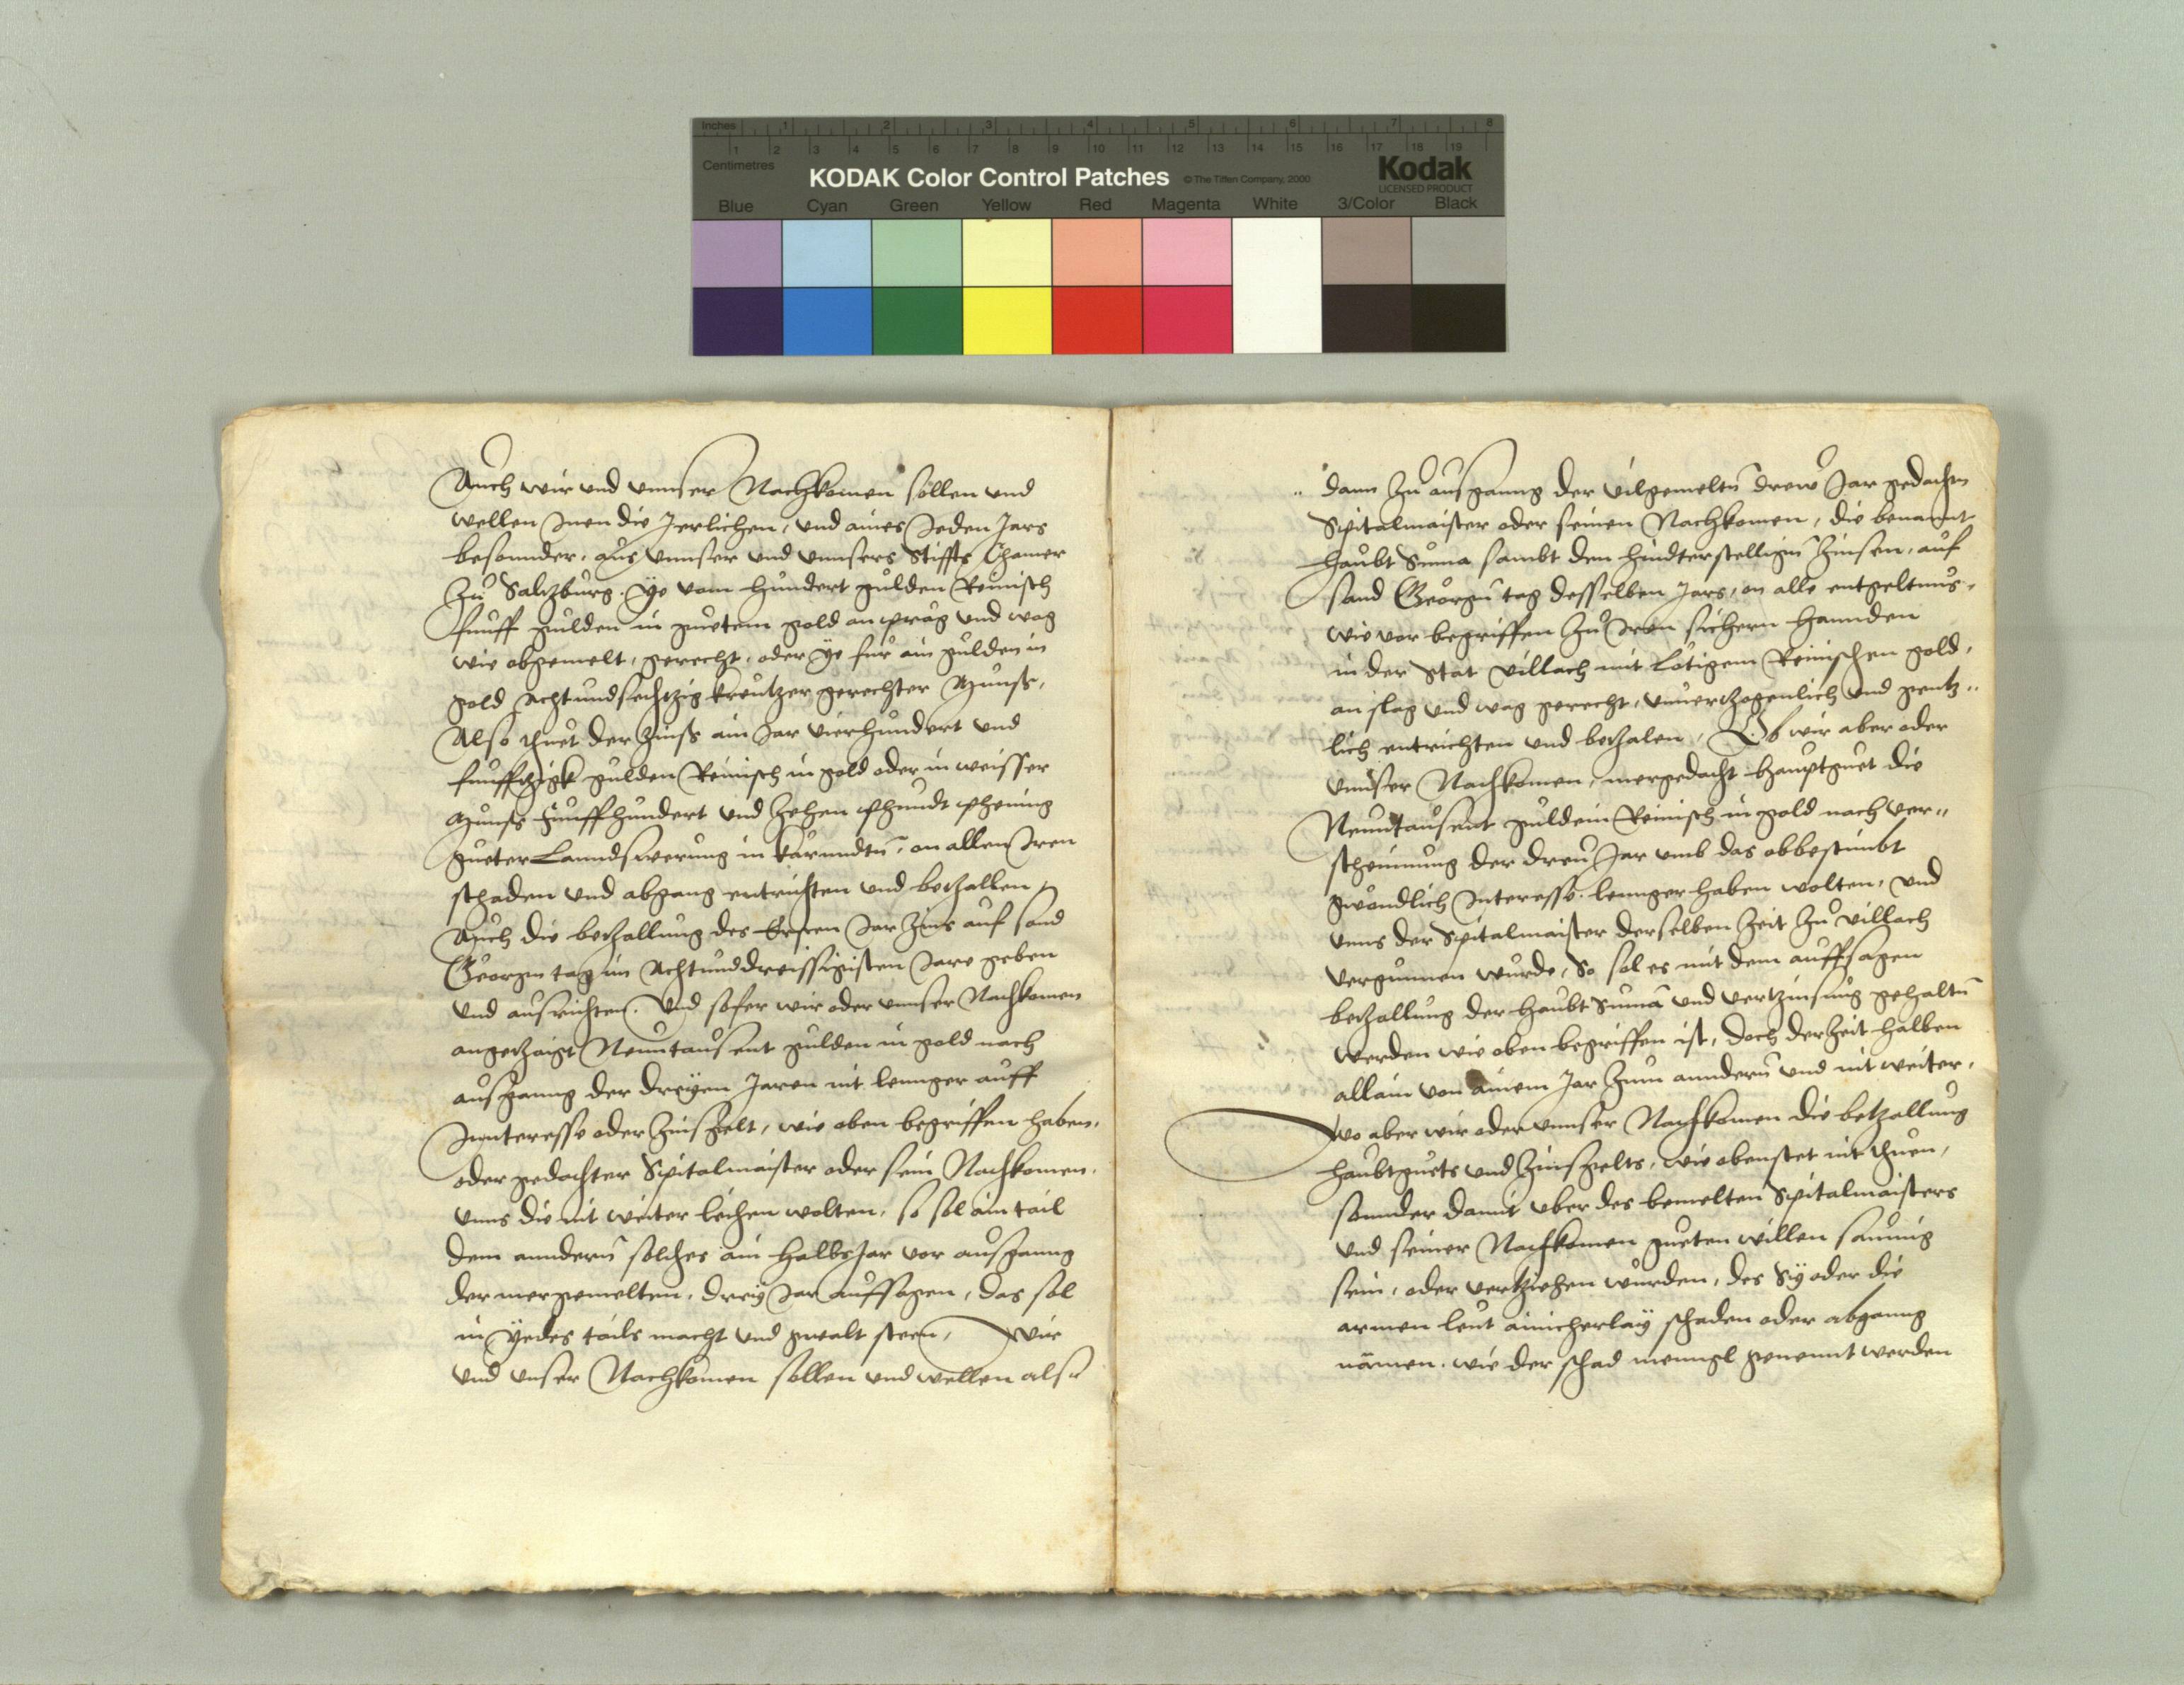 Inches 1 2 3 4 5 6 7 8
1 2 3 4 5 6 7 8 9 10 11 12 13 14 15 16 17 18 19
Centimetres
KODAK Color Control Patches © The Tiffen Company, 2000 Kodak
LICENSED PRODUCT
Blue Cyan Green Yellow Red Magenta White 3/Color Black
Auch wir und unnser Nachkomen sollen und
wellen Inen die Jerlichen, und aines Jeden Jars
besonnder, aus unnser und unnsers Stiffts Chamer
zu Saltzburg. Ye vom hundert gulden Reinisch
funff gulden in guetem gold an prag und wag
wie obgemelt, gerecht, oder Ye für ain gulden in
gold Achtundsechtzig kreutzer gerechter Münss,
Also thuet der Zinss ain Jar Vierhundert und
funfftzigk gulden Reinisch in gold oder in weisser
Münss Fünffhundert und Zehen phundt phening
gueter Lanndswerung in Kärnndtn, on allen Iren
schaden und abgang entrichten und betzallen,
Auch die betzallung des Ersten Jar Zins auf sand
Georgen tag im Achtunddreissigisten Jare geben
und ausrichten. Und sofer wir oder unnser Nachkomen
angetzaigt Neuntausent gulden in gold nach
ausganng der dreyen Jaren nit lennger auff
Innteresse oder Zinssgelt, wie oben begriffen haben,
oder gedachter Spitalmaister oder sein Nachkomen.
unns die nit weiter leichen wolten, so sol ain tail
dem anndern solches ain halbs Jar vor ausganng
der mergemelten, drey Jar auffsagen, das sol
in yedes tails macht und gwalt steen, Wir
und unser Nachkomen sollen und wellen also
dann zu ausganng der vilgemeltn drew Jar gedachtem
Spitalmaister oder seinen Nachkomen, die benannt
haubt Suma sambt den hindterstelligen Zinsen, auf
sand Georgen tag desselben Jars, on alle entgeltnus,
wie vor begriffen zu Iren sichern hannden
in der Stat Villach mit Lötigem Reinischen gold,
an slag und wag gerecht, unvertzogenlich und gentz"
lich entrichten und betzalen, Ob wir aber oder
unnser Nachkomen, mergedacht Hauptguet die
Neuntausent guldein Reinisch in gold nach ver"
scheinung der dreu Jar umb das obbestimbt
gwöndlich Interesse. lennger haben wolten, und
unns der Spitalmaister derselben Zeit zu Villach
vergunnen wurde, So sol es mit dem auffsagen
betzallung der haubt Sumä und vertzinsung gehaltn
werden wie oben begriffen ist, doch der Zeit halben
allain von ainem Jar zum anndern und nit weiter,
Wo aber wir oder unnser Nachkomen die betzallung
haubtguets und Zinssgelts, wie obenstet nit thuen,
sonnder damit uber des bemelten Spitalmaisters
und seiner Nachkomen gueten willen saumig
sein, oder vertziehen wurden, des Sy oder die
armen leut ainicherlay schaden oder abganng
nämen. wie der schad menngl genennt werden